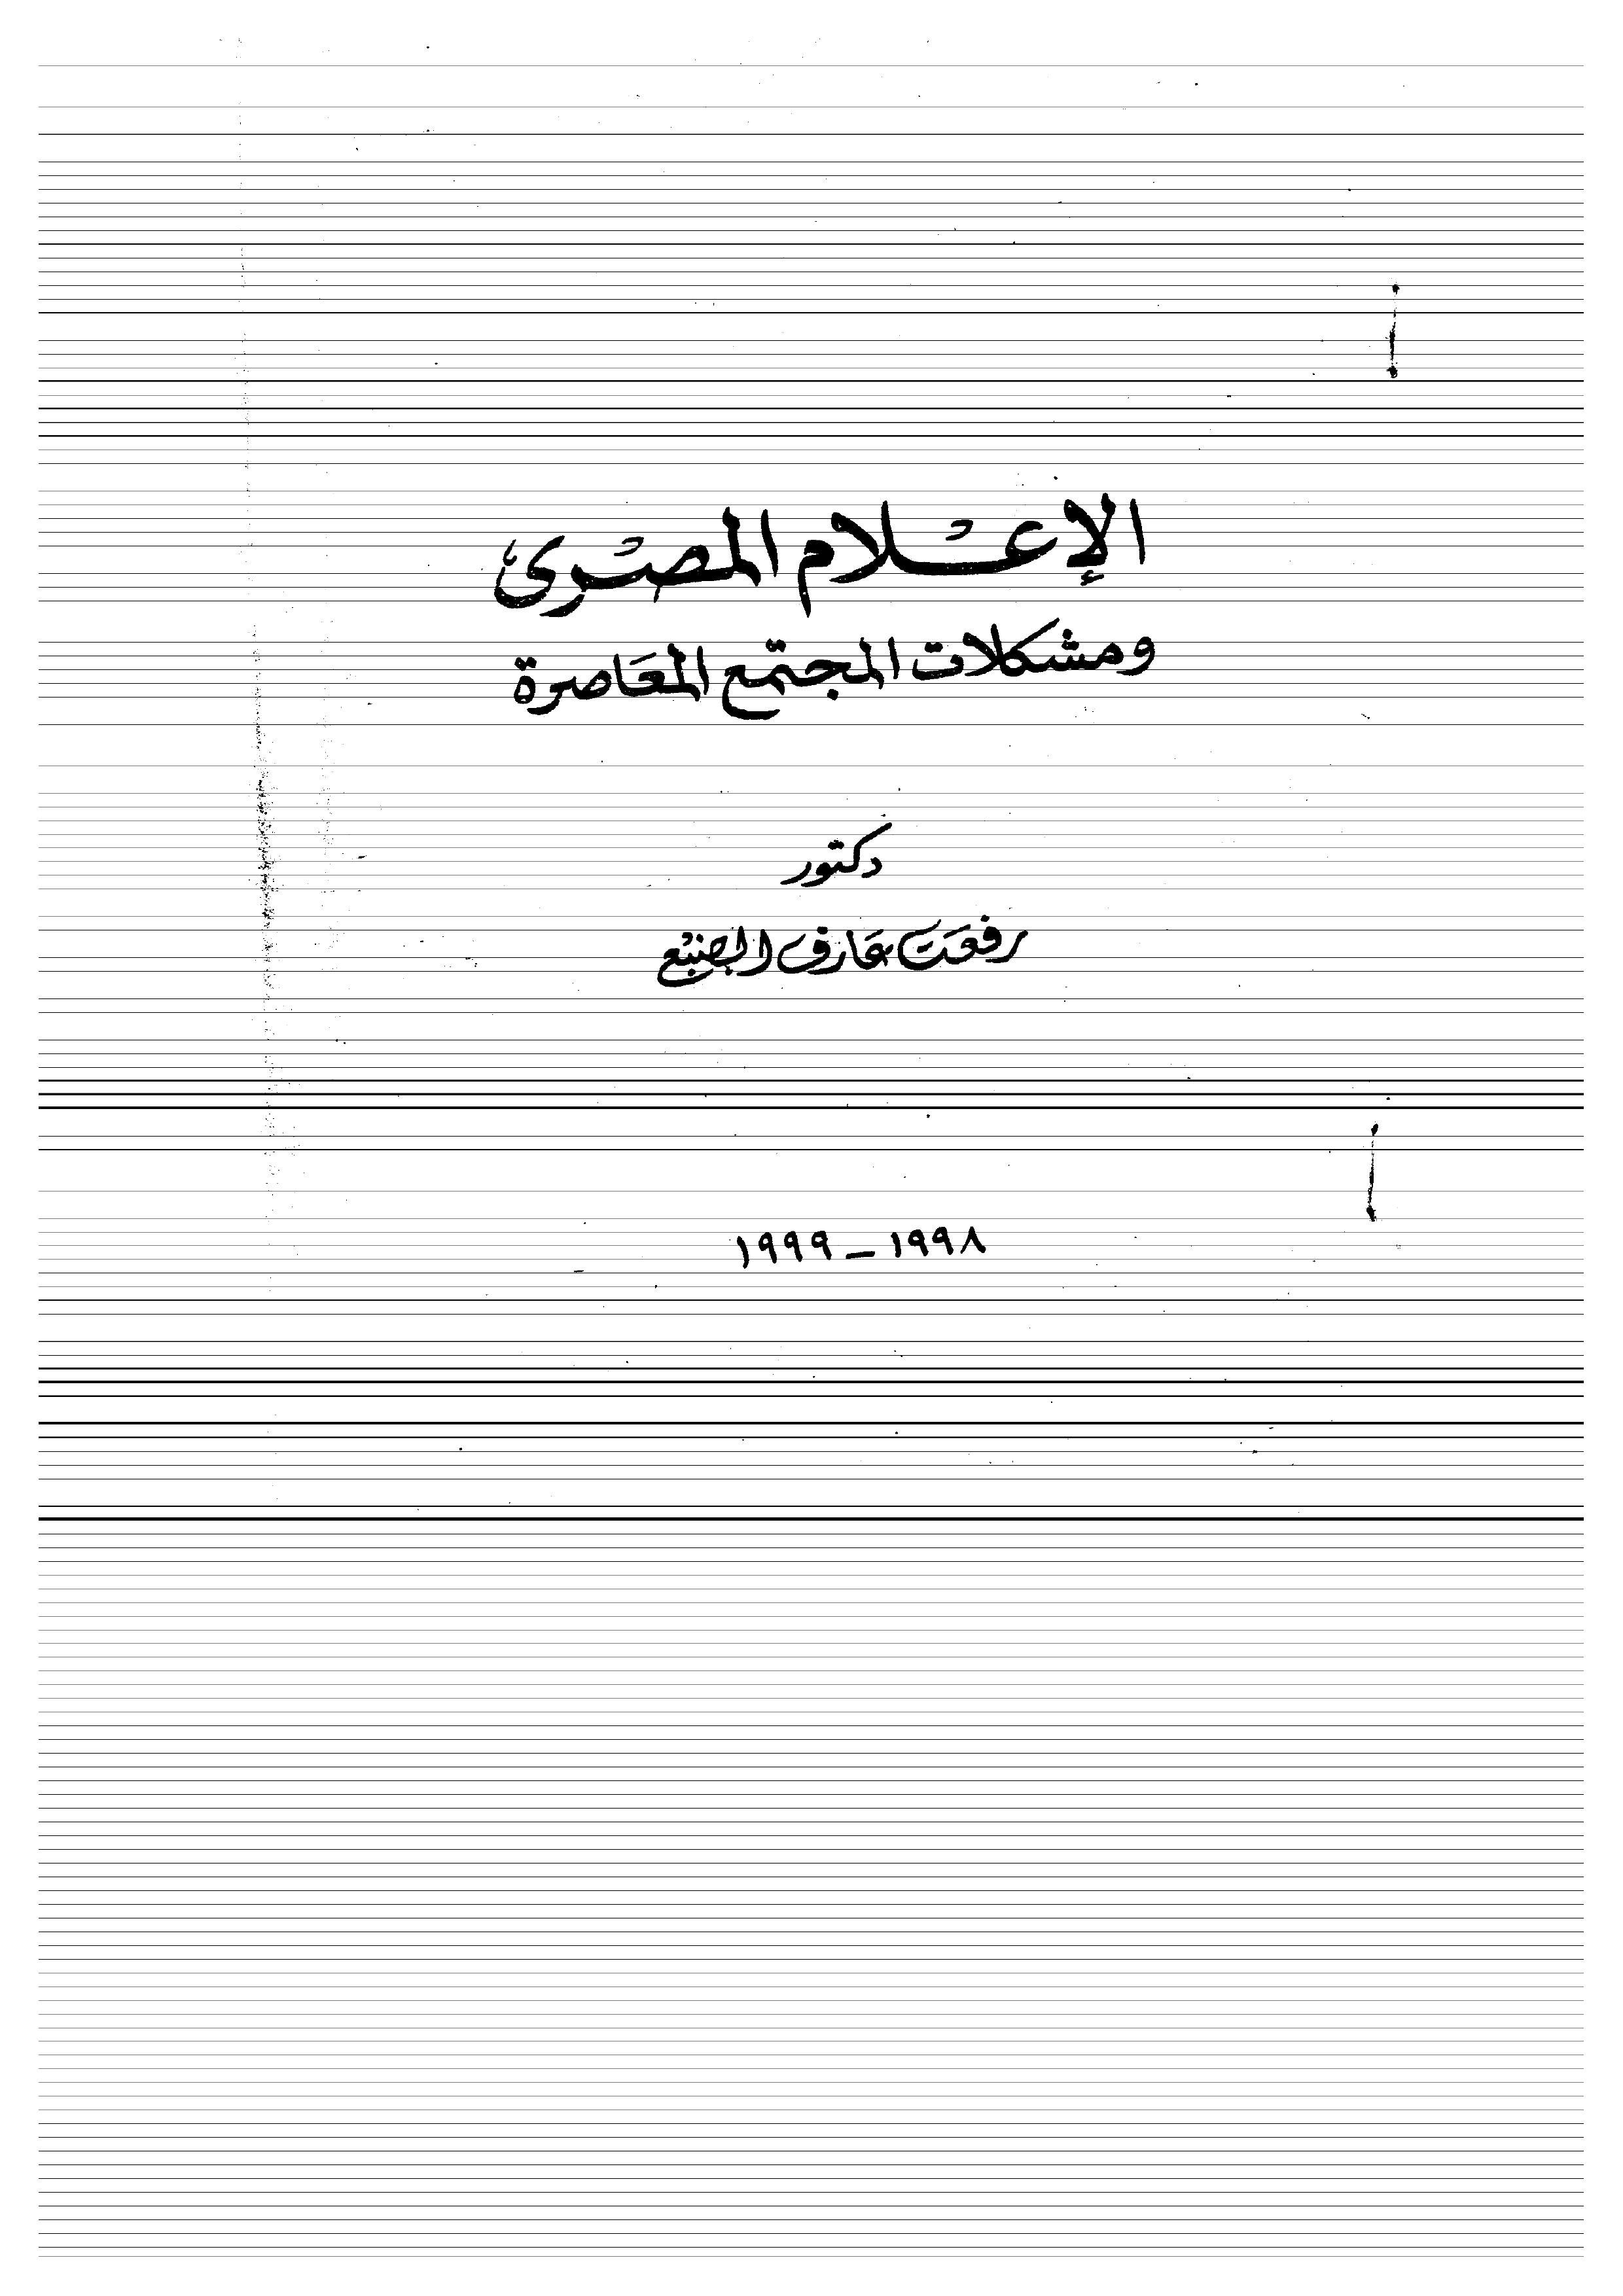 الإعلام المصرى
ومشكلات المجتمع المعاصرة
دكتور
رفعت عارف الضبع
١٩٩٨ – ١٩٩٩